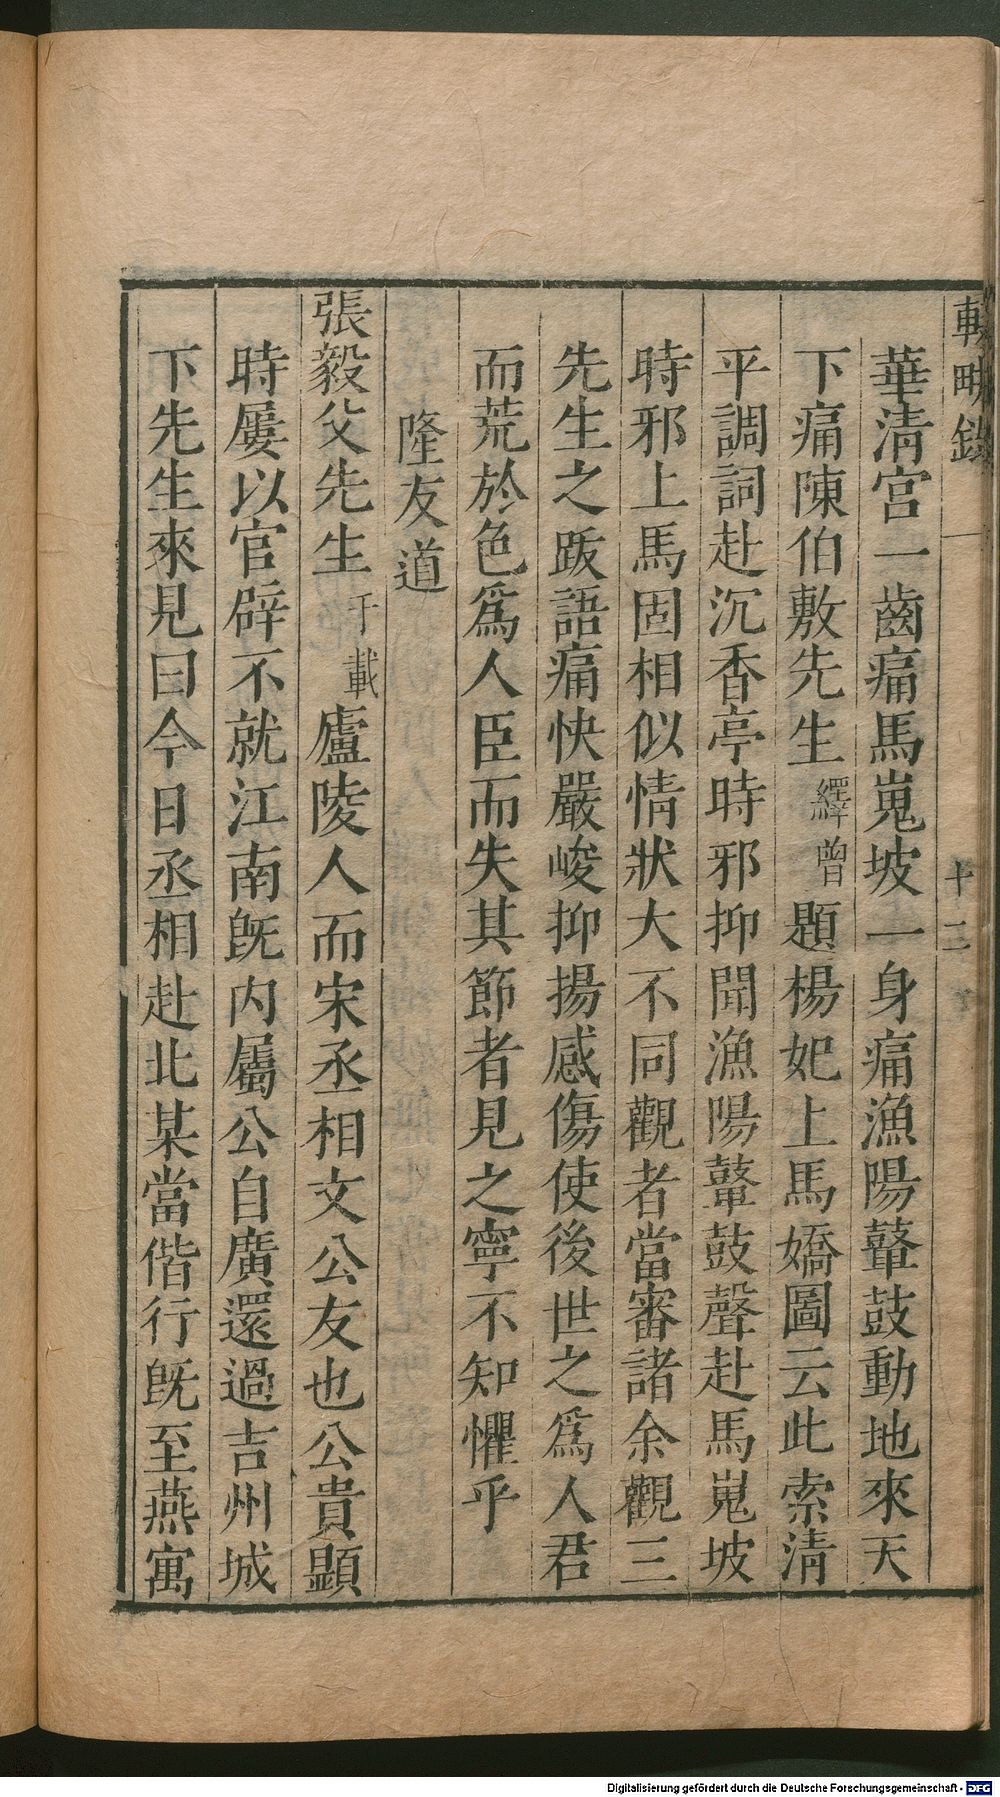 輟畊錄 一 十二
華清宫一齒痛馬嵬坡一身痛漁陽鼙鼓動地來天
下痛陳伯敷先生繹曾題楊妃上馬嬌圖云此索清
平調詞赴沉香亭時邪抑聞漁陽鼙鼓聲赴馬嵬坡
時邪上馬固相似情狀大不同觀者當審諸余觀三
先生之跋語痛快嚴峻抑揚感傷使後世之爲人君
而荒於色爲人臣而失其節者見之寧不知懼乎
隆友道
張毅父先生千載廬陵人而宋丞相文公友也公貴顯
時屢以官辟不就江南旣内屬公自廣還過吉州城
下先生來見曰今日丞相赴北某當偕行旣至燕寓
Digitalisierung gefördert durch die Deutsche Forschungsgemeinschaft - DFG